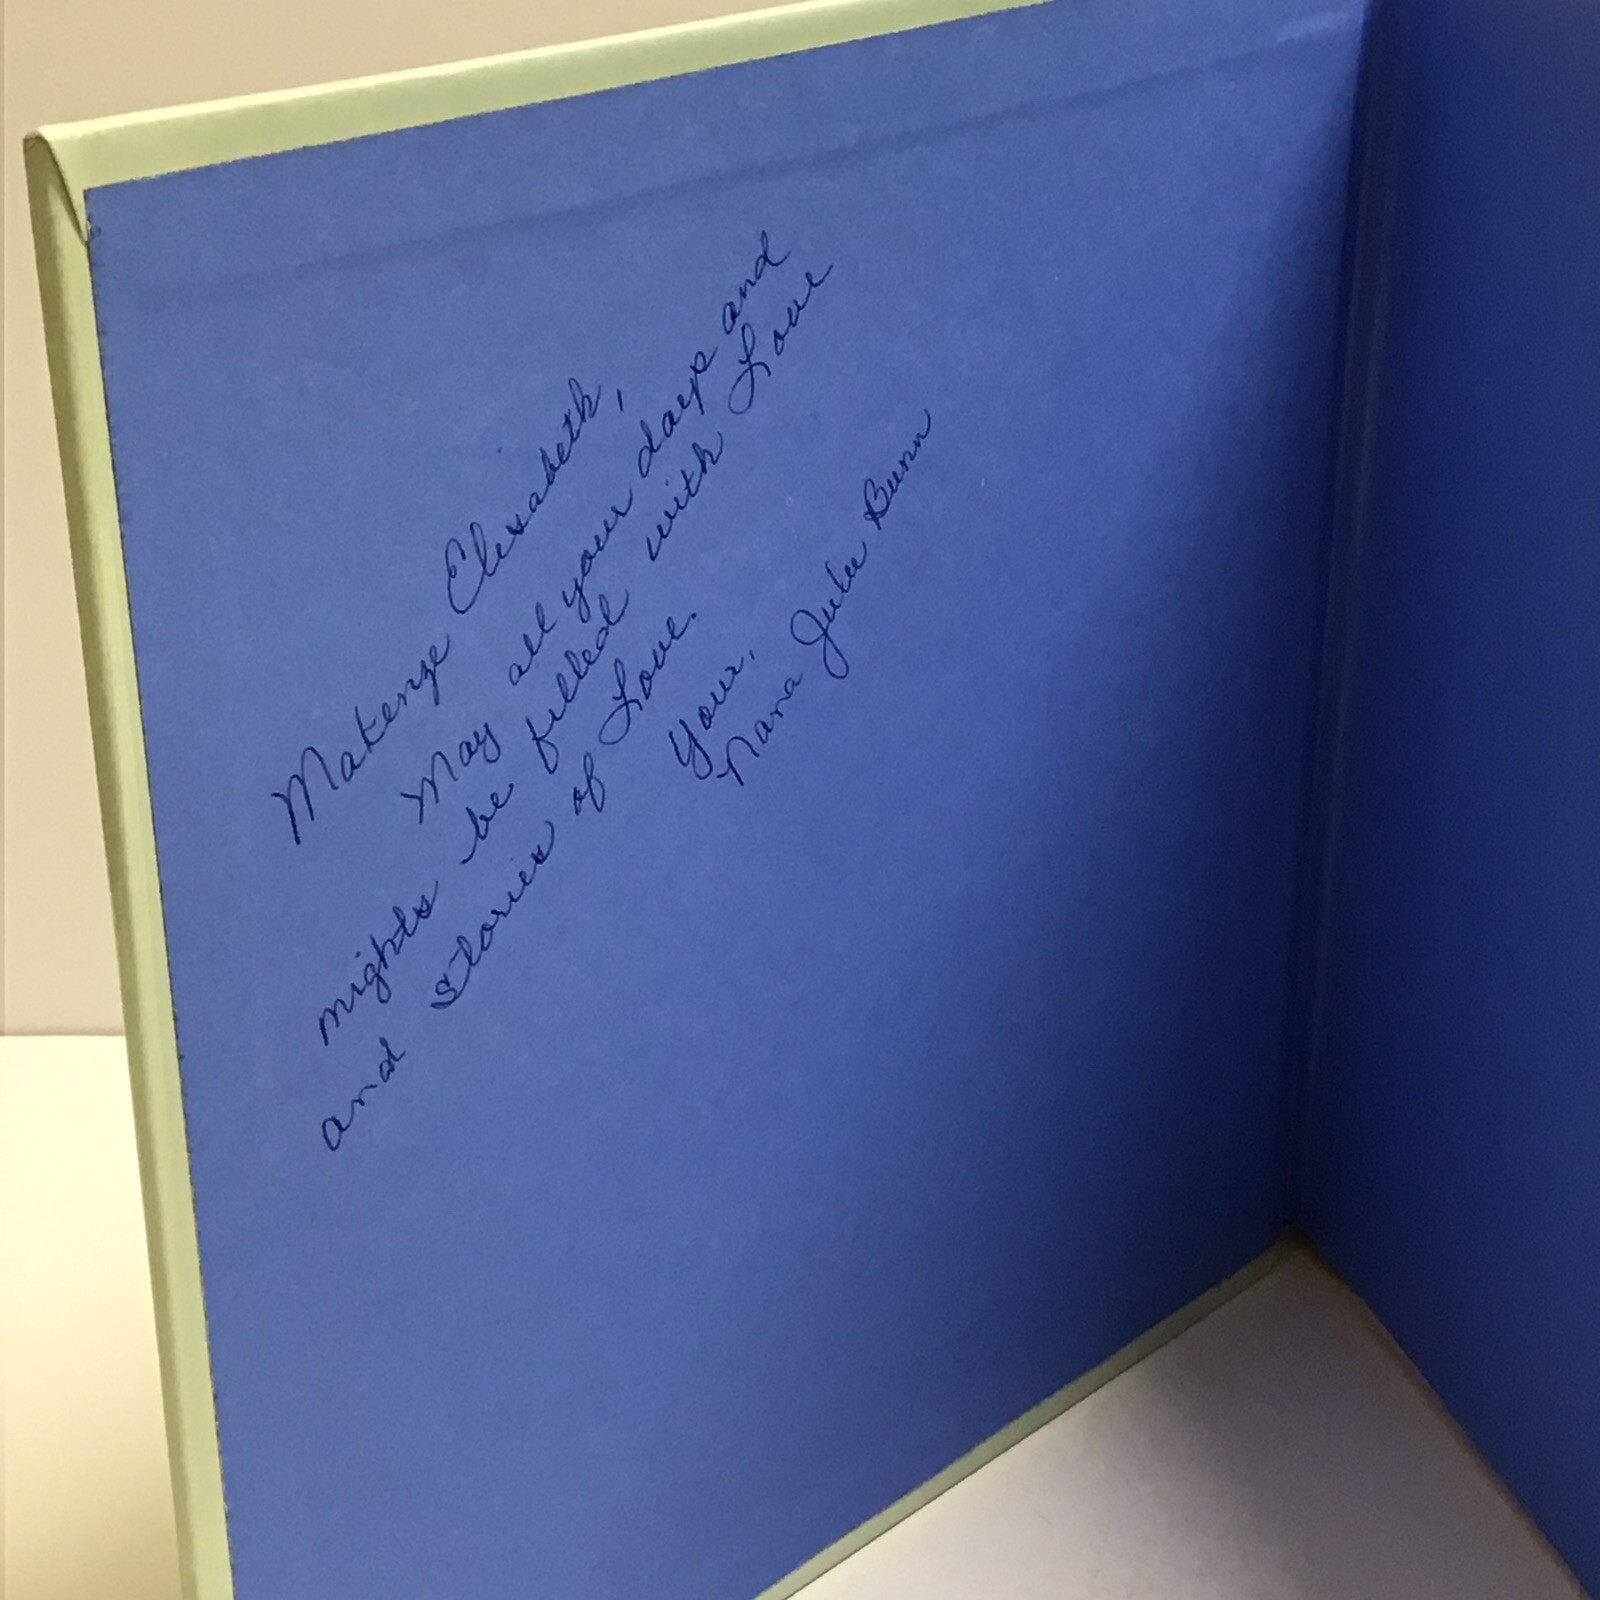 Makenze Elisabeth,
May all your days and
nights be filled with Love
and stories of Love.
Your,
Nana Julie Bunn